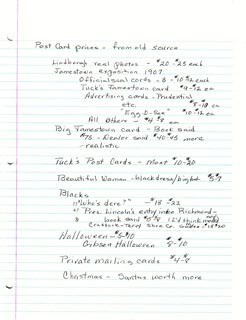 Post Card prices - from old source
Lindbergh real photos - $20-$25 each
Jamestown Exposition 1907
Official seal cards - 8-$10-$12 each
Tuck's Jamestown card $9-$12 ea
Advertising cards - Prudential
etc. $8-10 ea
"Egg-O-See" $10-12 ea
All others - $4-$8 ea
Big Jamestown card - Book said
$75 - Dealer said $40-$45 more
- realistic
Tuck's Post Cards - Most $10-20
Beautiful Woman - black dress/big hat $5-$7
Blacks
"Who's dere?" - $18-$22
Pres. Lincoln's entry into Richmond -
book said $5-$8 I'd think more
Craddock-Terry Shoe Co. Guide $18-20
Halloween - $6-$10
Gibson Halloween $8-10
Private mailing cards $4-$8
Christmas - Santas worth more